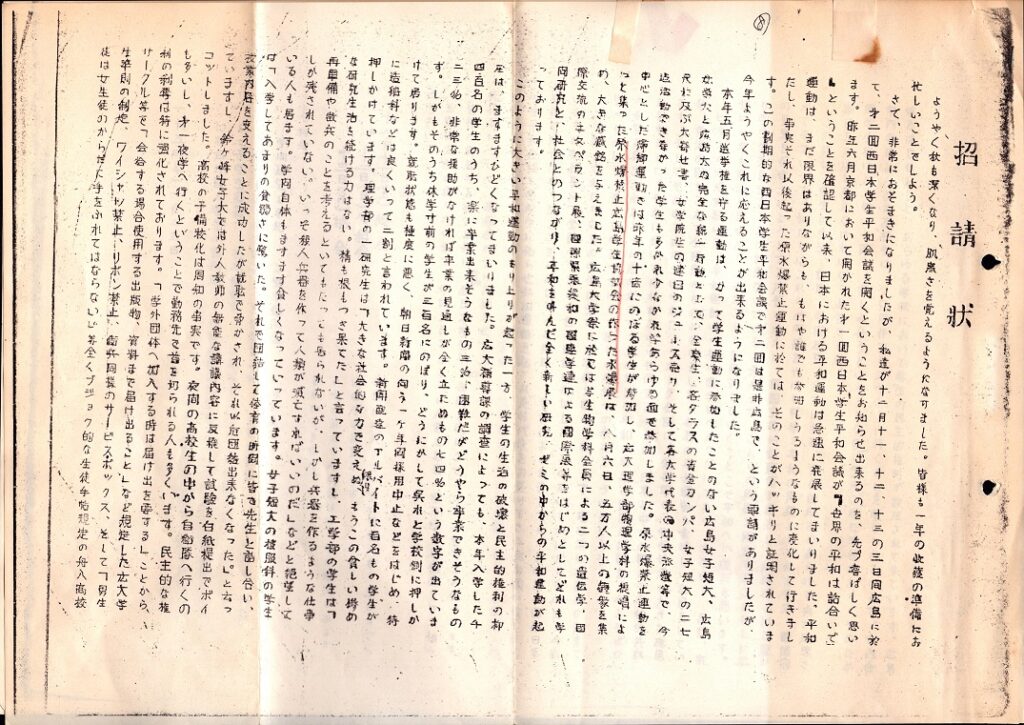 ⑧
招請状
ようやく秋も深くなり、肌寒さを覚えるようになりました。皆様、一年の収穫の準備にお
忙しいことでしよう。
さて、非常におそまきになりましたが、私達が十二月十一、十二、十三の三日間広島に於
て、才二回西日本学生平和会議を開くということをお知らせ出来るのを、先づ喜ばしく思い
ます。昨年六月京都において開かれた才一回西日本学生平和会議が『世界の平和は話合いで
』ということを確認して以来、日本における平和運動は急速に発展してまいりました。平和
運動は、まだ限界はありながらも、もはや誰でも参加しうるようなものに変化して行きまし
たし、事実それ以後起った原水爆禁止運動に於ては、そのことがハッキリと証明されていま
す。この劃期的な西日本学生平和会議で才二回は是非広島で、という要請がありましたが、
今年ようやくこれに応えることが出来るようになりました。
本年五月選挙を守る運動は、かって学生運動に参加したことのない広島女子短大、広島
女学院大と広島大の完全な統一行動と
尺に及ぶ大寄せ書、女学院生の連日のジュース売り、そして各大学代表の中央派遣等で、今
迄活動できなかった学生も多かれ少なかれ学あらゆる面で参加しました。原水爆禁止運動を
中心とした帰郷運動は昨年の十倍にのぼる学生が参加し、広大理学部物理学科の提唱によ
って集った原水爆禁止広島学生協議会の作った大爆風は、八月六日、五万人以上の群衆を集
め、大きな感銘を与えました。広島大学祭に於ては、生物学科会員による二つの遺伝学、国
際交流のエスペラント展、国際緊張緩和の
同研究と、社会とのつながり、平和を呼んだ全く新しい研究、ゼミの中からの平和運動が起
っております。
このように大きい平和運動のもり上りが起った一方、学生の生活の破壊と民主的権利の抑
圧は、ますますひどくなってまいりました。広大補導課の調査によっても、本年入学した千
四百名の学生のうち、楽に卒業出来そうなもの三％、困難だがどうやら卒業できそうなもの
二三％、非常な援助がなければ卒業の見通しが全く立たぬもの七四％という数字が出ていま
す。しかもそのうち休学寸前の学生が三百名にのぼり、どうにかして呉れと学校側に押しか
けて居ります。就職状態も極度に悪く、朝日新聞の向う一ケ年間採用中止などをはじめ、特
に造船科などは良くいって二割と言われています。新聞配達のアルバイトに百名もの学生が
押しかけています。理学部の一研究生は「大きな社会的な力で変え得ぬ、もうこの食しい惨め
な研究生活を続ける力はない。精も根もつき果てた」と言っていますし、工学部の学生は「
再軍備や徴兵のことを考えるといてもたっても居られないが、しかし兵器を作るような仕事
しか残されていない。いっそ殺人兵器を作って人類が滅亡すればいいのだ」などと絶望して
いる人も居ます。学問自体もますます貧しくなっていっています。女子短大の被服科の学生
は「入学してあまりの貧弱さに驚いた。それで団結して体育の時間に皆で先生と話し合い、
授業内容を変えることに成功したが就職で脅かされ、それ以后団結出来なくなった」と云っ
ていますし、鈴ケ峰女子大では外人教師の無能な講議内容に反板して試験を白紙提出でボイ
コットしました。高校の予備校化は周知の事実です。夜間の高校生の中から自衛隊へ行くの
も多いし、才一夜学へ行くということで勤務先で首を切られる人も多くいます。民主的な権
利の剥奪は特に強化されております。「学外団体へ加入する時は届け出を要する」ことから、
サークル等を「会合する場合使用する出版物、資料まで届け出ること」など規定した広大学
生準則の制定、ワイシャツ禁止、リボン禁止、
徒は女生徒のからだに手をふれてはならない」等全くブジョク的な生徒手帖規定の舟入高校